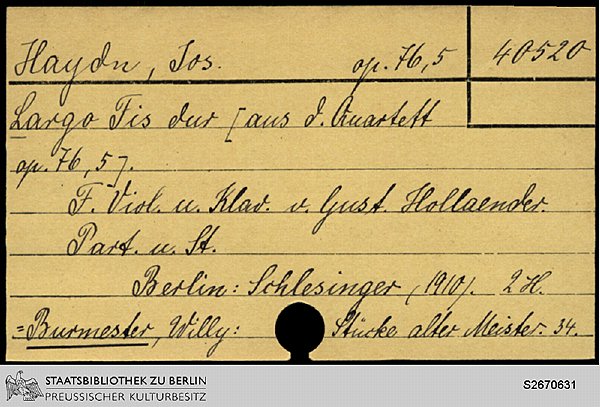 Haydn, Jos. op. 76,5 40520
Largo Fis dur [aus d. Quartett
op. 76, 5].
F. Viol. u. Klav. v. Gust. Hollaender.
Part. u. St.
Berlin: Schlesinger (1910). 2 H.
=Burmester, Willy: Stücke alter Meister. 34.
STAATSBIBLIOTHEK ZU BERLIN
PREUSSISCHER KULTURBESITZ
S2670631